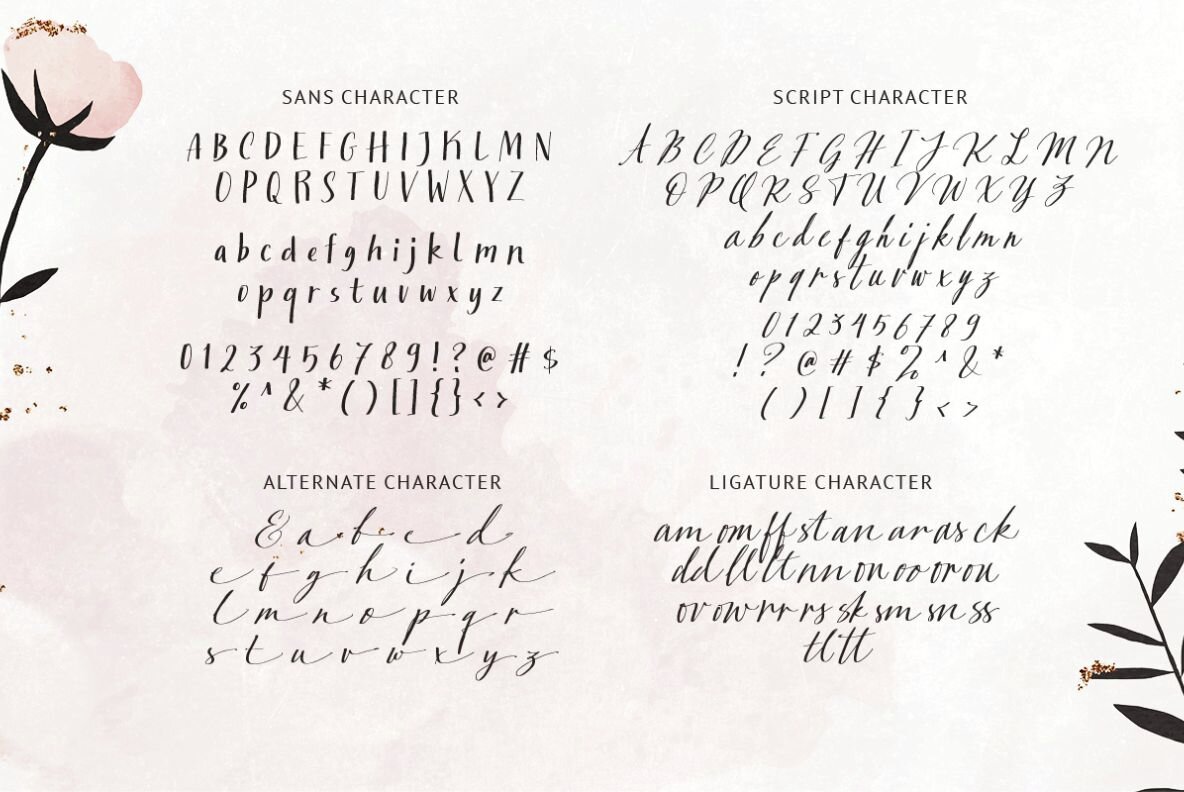 SANS CHARACTER
A B C D E F G H I J K L M N
O P Q R S T U V W X Y Z
a b c d e f g h i j k l m n
o p q r s t u v w x y z
0 1 2 3 4 5 6 7 8 9 ! ? @ # $
% ^ & * ( ) [ ] { } < >
SCRIPT CHARACTER
A B C D E F G H I J K L M N
O P Q R S T U V W X Y Z
a b c d e f g h i j k l m n
o p q r s t u v w x y z
0 1 2 3 4 5 6 7 8 9
! ? @ # $ % ^ & *
( ) [ ] { } < >
ALTERNATE CHARACTER
& a b c d
e f g h i j k
l m n o p q r
s t u v w x y z
LIGATURE CHARACTER
am om ff st an ar as ck
dd ll lt nn on oo or ou
ov ow rr rs sk sm sn ss
tl tt